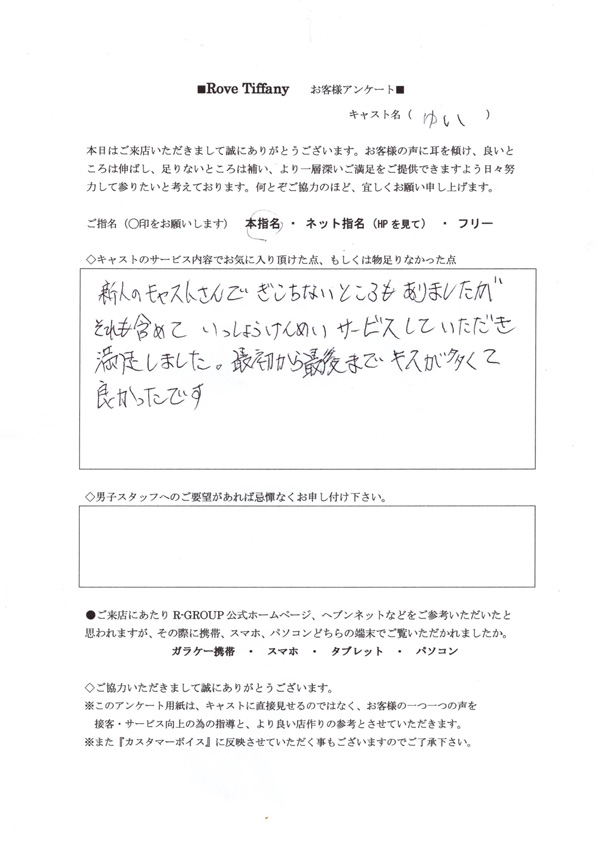 ■Rove Tiffany　お客様アンケート■
キャスト名（ ゆい ）
本日はご来店いただきまして誠にありがとうございます。お客様の声に耳を傾け、良いと
ころは伸ばし、足りないところは補い、より一層深いご満足をご提供できますよう日々努
力して参りたいと考えております。何とぞご協力のほど、宜しくお願い申し上げます。
ご指名（〇印をお願いします）　本指名 ・ ネット指名（HPを見て） ・ フリー
◇キャストのサービス内容でお気に入り頂けた点、もしくは物足りなかった点
新人のキャストさんで ぎこちないところも ありましたが
それも含めて いっしょうけんめい サービスしていただき
満足しました。最初から最後まで キスが多くて
良かったです
◇男子スタッフへのご要望があれば忌憚なくお申し付け下さい。
●ご来店にあたり R-GROUP 公式ホームページ、ヘブンネットなどをご参考いただいたと
思われますが、その際に携帯、スマホ、パソコンどちらの端末でご覧いただかれましたか。
ガラケー携帯 ・ スマホ ・ タブレット ・ パソコン
◇ご協力いただきまして誠にありがとうございます。
※このアンケート用紙は、キャストに直接見せるのではなく、お客様の一つ一つの声を
接客・サービス向上の為の指導と、より良い店作りの参考とさせていただきます。
※また『カスタマーボイス』に反映させていただく事もございますのでご了承下さい。